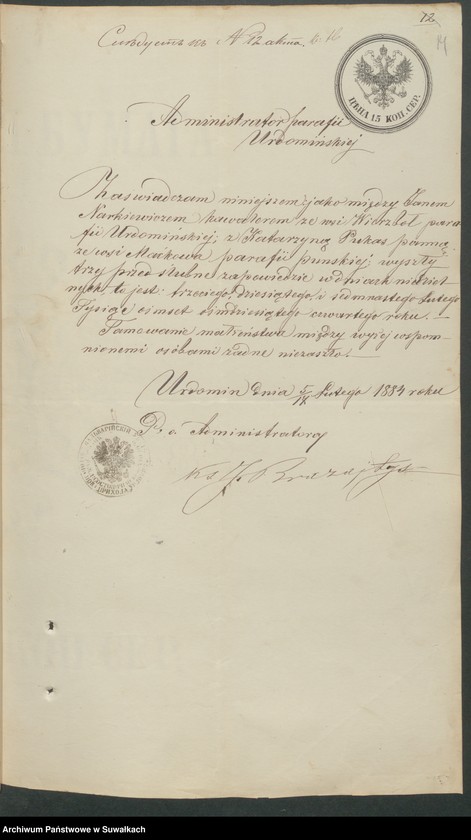 12
Слѣдуетъ къ N 12 акта
ЦѢНА 15 КОП. СЕР.
Administrator parafii
Urdomińskiej
Zaświadczam niniejszem jako między Janem
Narkiewiczem kawalerem ze wsi Wierzbol para-
fii Urdomińskiej; z Katarzyną Pukas panną
ze wsi Markowa parafii punskiej; wyszły
trzy przed slubne zapowiedzie w dniach niedziel
nych, to jest: trzeciego, dziesiątego, i siedmnastego Lutego
Tysiąc osmset osmdziesiątego czwartego roku.
Tamowanie małżeństwa między wyżej wspom-
nionemi osobami żadne niezaszło.
Urdomin dnia Lutego 1884 roku
P. o. Administratora
Ks. J.
Archiwum Państwowe w Suwałkach